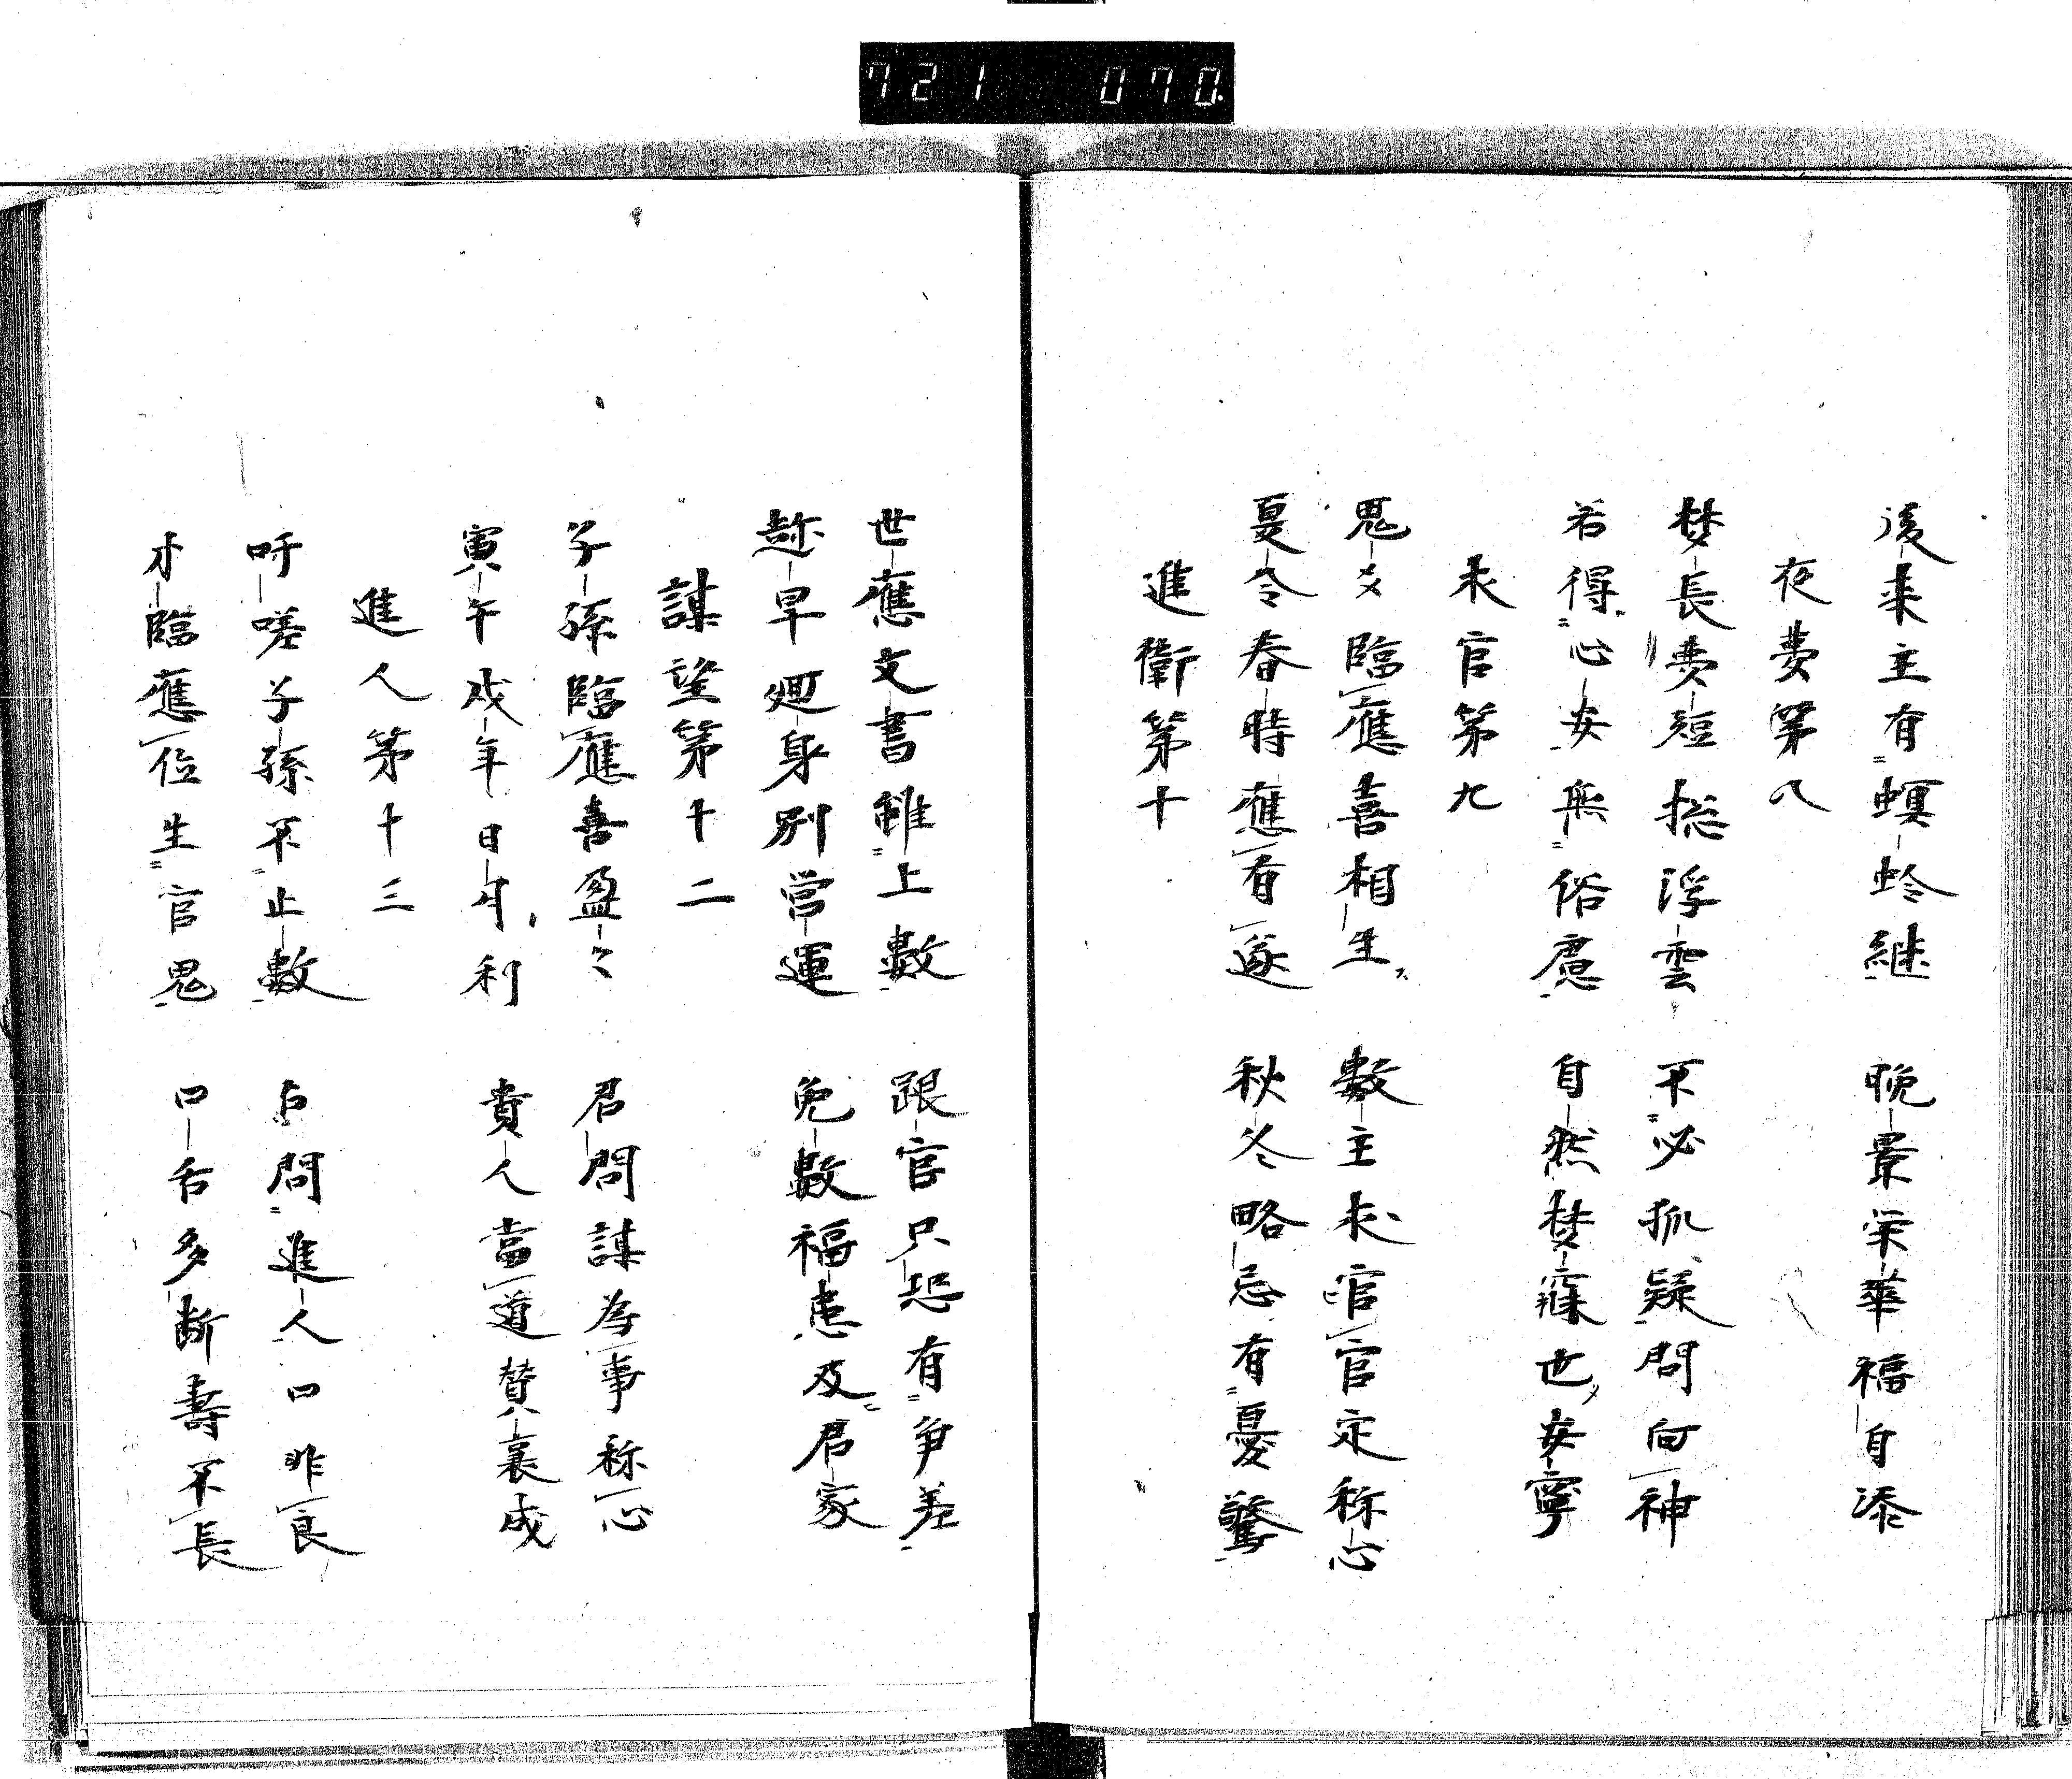 721 070
後来主有螟蛉継 晩景栄華福自添
夜夢第八
梦長夢短揔浮雲 不必孤疑問向神
若得心安無俗慮 自然梦寐也安寧
求官第九
鬼爻臨應喜相生 數主求官官定称心
夏令春時應有遂 秋冬略忌有憂驚
進衛第十
世應文書雖上數 跟官只恐有争差
趂早迴身別营運 免數福患及君家
謀望第十二
子孫臨應喜盈々 君問謀為事称心
寅午戌年日月利 貴人當道賛襄成
進人第十三
吁嗟子孫不止數 占問進人口非良
才臨應位生官鬼 口舌多断壽不長